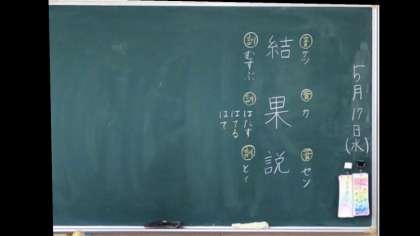 5月17日(水)
音 ケツ
結
訓 むすぶ
音 カ
果
訓 はたす
はてる
はて
音 セツ
説
訓 とく